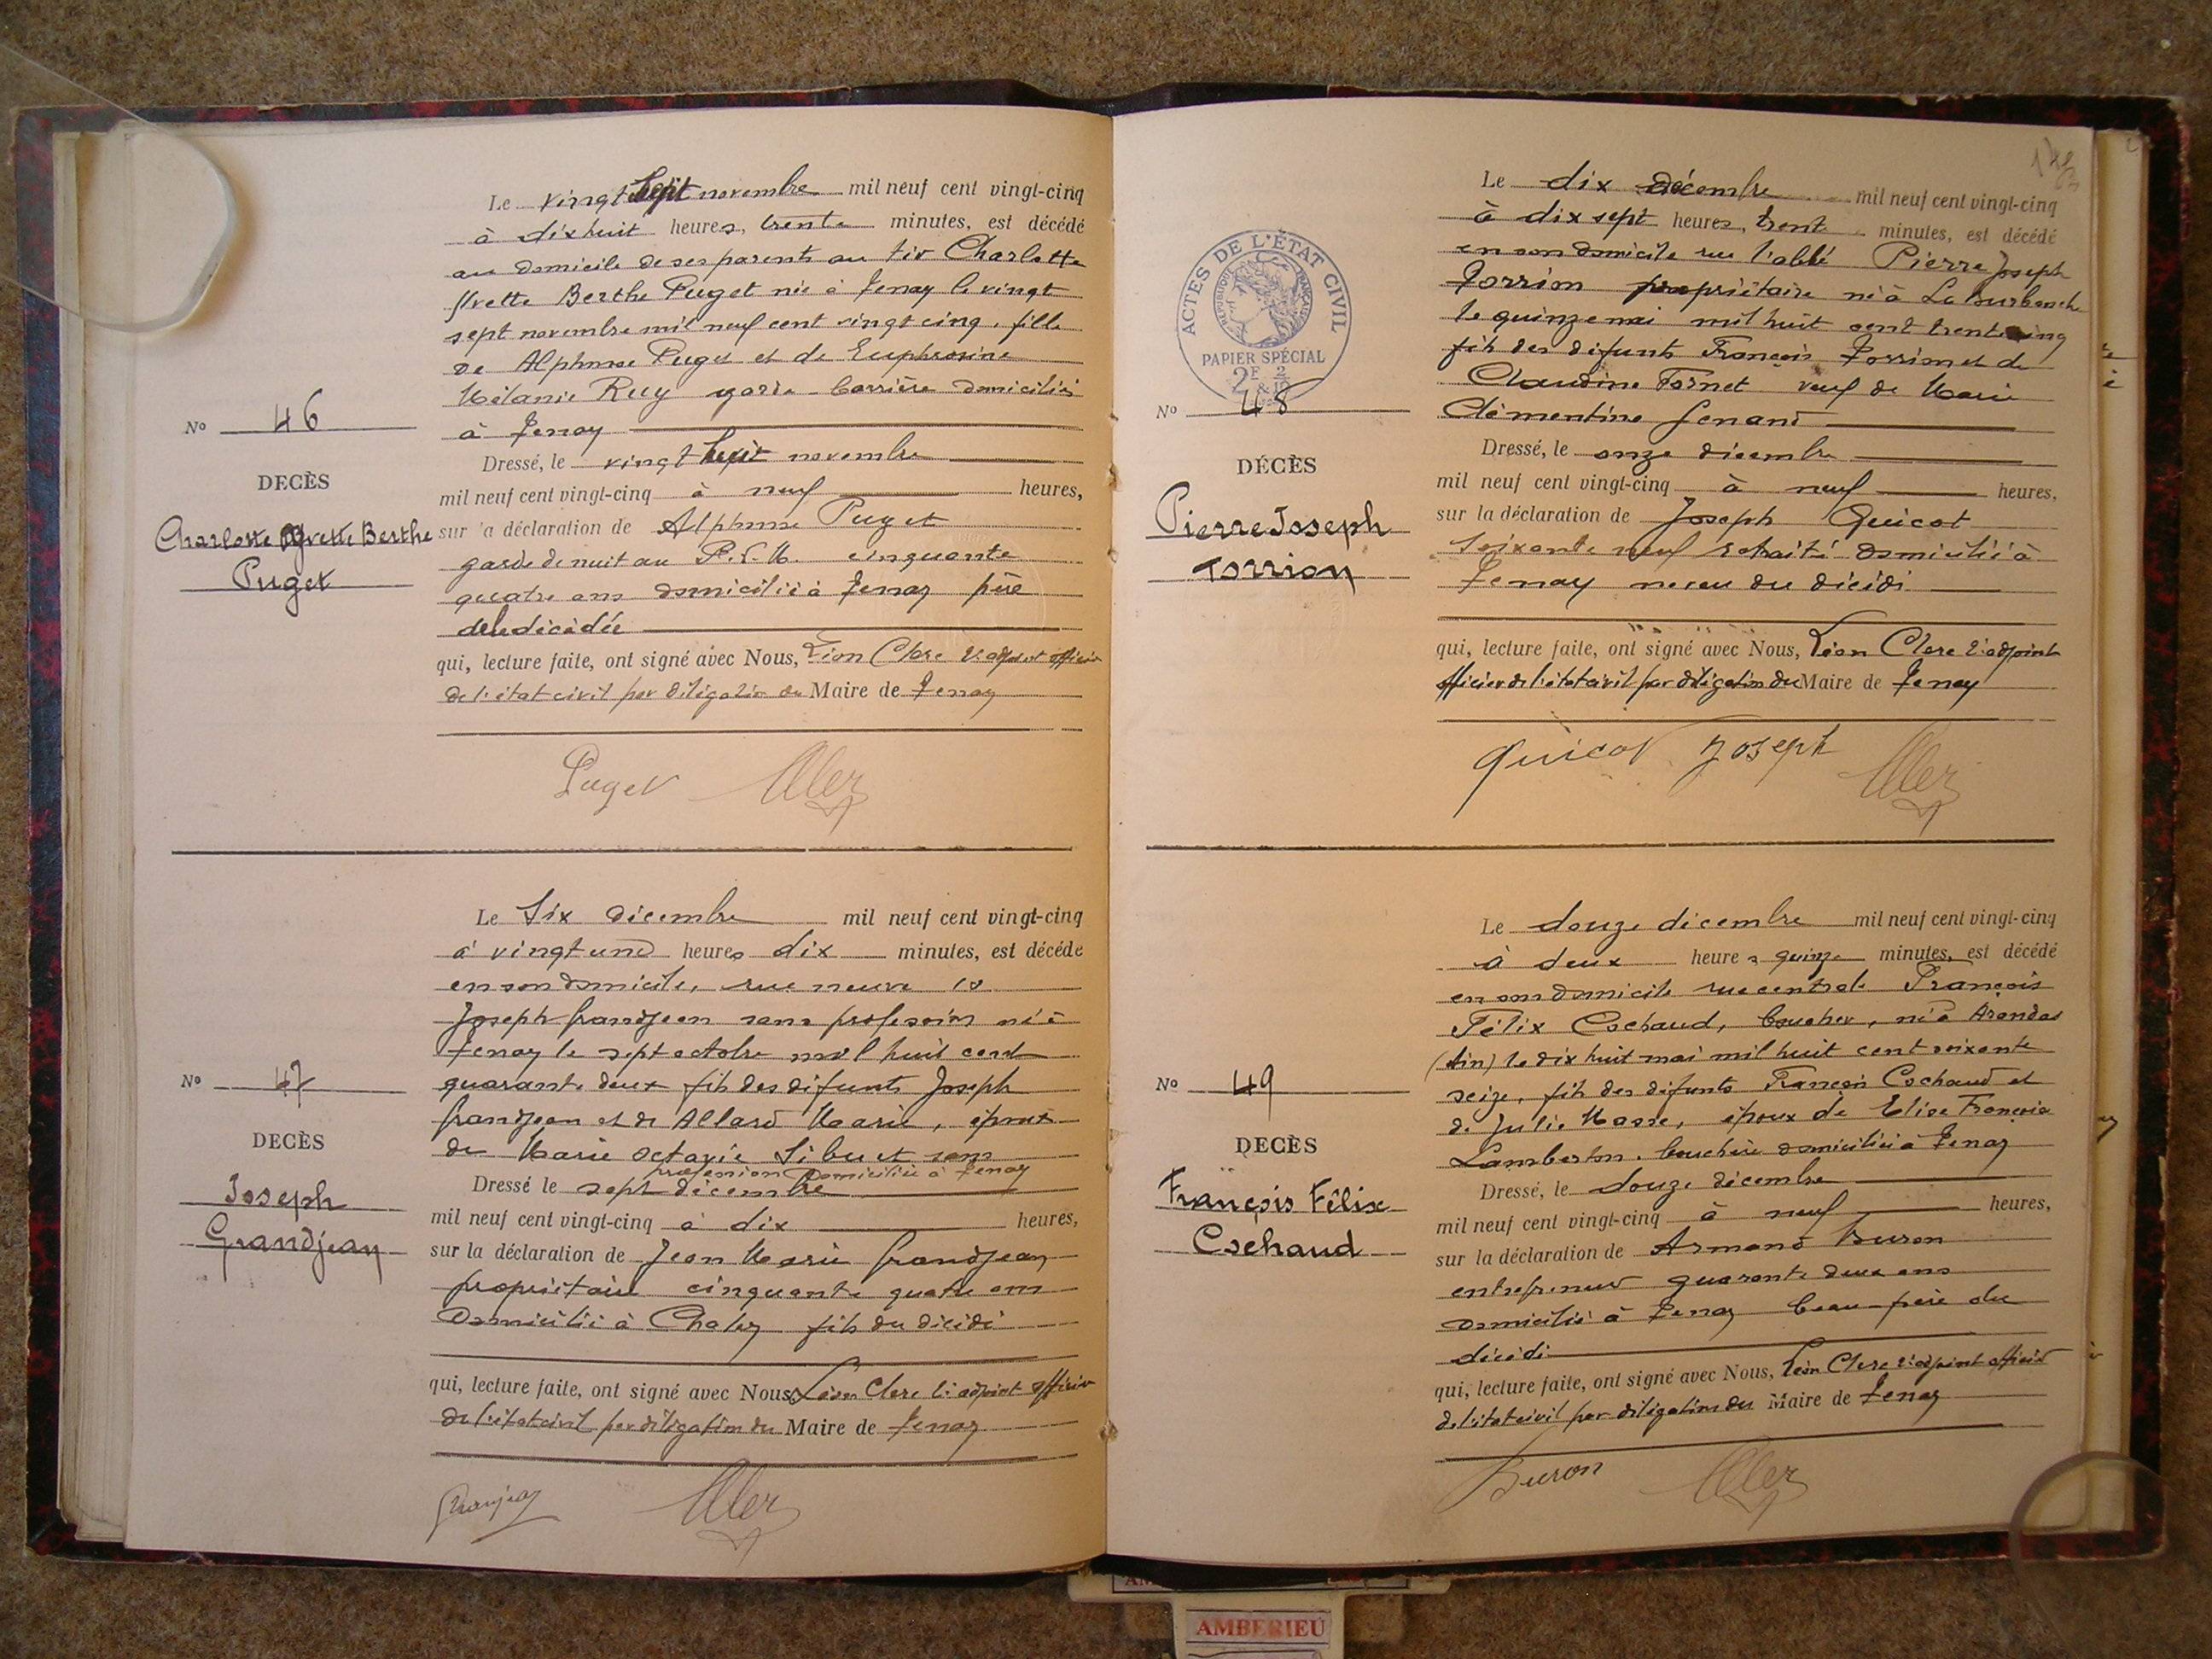 Le vingt sept novembre mil neuf cent vingt-cinq
à dixhuit heures, trente minutes, est décédé
au domicile de ses parents au tir Charlotte
Yvette Berthe Puget née à Tenay le vingt
sept novembre mil neuf cent vingt cinq, fille
de Alphonse Puget et de Euphrosine
Mélanie Rey garde-barrière domiciliés
à Tenay
No 46
DECÈS
Charlotte Yvette Berthe
Puget
Dressé, le vingt huit novembre
mil neuf cent vingt-cinq à neuf heures,
sur la déclaration de Alphonse Puget
garde de nuit au P.L.M. cinquante
quatre ans domicilié à Tenay père
de la décédée
qui, lecture faite, ont signé avec Nous, Léon Clerc adjoint officier
de l'état civil par délégation du Maire de Tenay
Puget
Le Six décembre mil neuf cent vingt-cinq
à vingt une heures dix minutes, est décédé
en son domicile, rue neuve 10
Joseph Grandjean sans profession né à
Tenay le sept octobre mil huit cent
quarante deux fils des défunts Joseph
Grandjean et de Allard Marie, époux
de Marie Octavie Sibuet sans
profession domiciliée à Tenay
No 47
DECÈS
Joseph
Grandjean
Dressé le sept décembre
mil neuf cent vingt-cinq à dix heures,
sur la déclaration de Jean Marie Grandjean
propriétaire cinquante quatre ans
domicilié à Chaley fils du décédé
qui, lecture faite, ont signé avec Nous, Léon Clerc adjoint officier
de l'état civil par délégation du Maire de Tenay
Le dix décembre mil neuf cent vingt-cinq
à dix sept heures, trente minutes, est décédé
en son domicile rue l'abbé Pierre Joseph
Torrion propriétaire né à La burbanche
le quinze mai mil huit cent trente cinq
fils des défunts François Torrion et de
Claudine Fornet veuf de Marie
Clémentine Genand
ACTES DE L'ÉTAT CIVIL
RÉPUBLIQUE FRANÇAISE
PAPIER SPÉCIAL
No 48
DÉCÈS
Pierre Joseph
Torrion
Dressé, le onze décembre
mil neuf cent vingt-cinq à neuf heures,
sur la déclaration de Joseph Quicot
soixante neuf retraité domicilié à
Tenay neveu du décédé
qui, lecture faite, ont signé avec Nous, Léon Clerc adjoint
officier de l'état civil par délégation du Maire de Tenay
Quicot Joseph
Le douze décembre mil neuf cent vingt-cinq
à deux heures quinze minutes, est décédé
en son domicile rue centrale François
Félix Cochaud, boucher, né à Arandas
(Ain) le dix huit mai mil huit cent soixante
seize, fils des défunts François Cochaud et
de Julie Masse, époux de Elise Françoise
Lamberton, bouchère domiciliée à Tenay
No 49
DECÈS
François Félix
Cochaud
Dressé, le douze décembre
mil neuf cent vingt-cinq à neuf heures,
sur la déclaration de Armand Buron
entrepreneur quarante deux ans
domicilié à Tenay beau-père du
décédé
qui, lecture faite, ont signé avec Nous, Léon Clerc adjoint officier
de l'état civil par délégation du Maire de Tenay
Buron
AMBERIEU